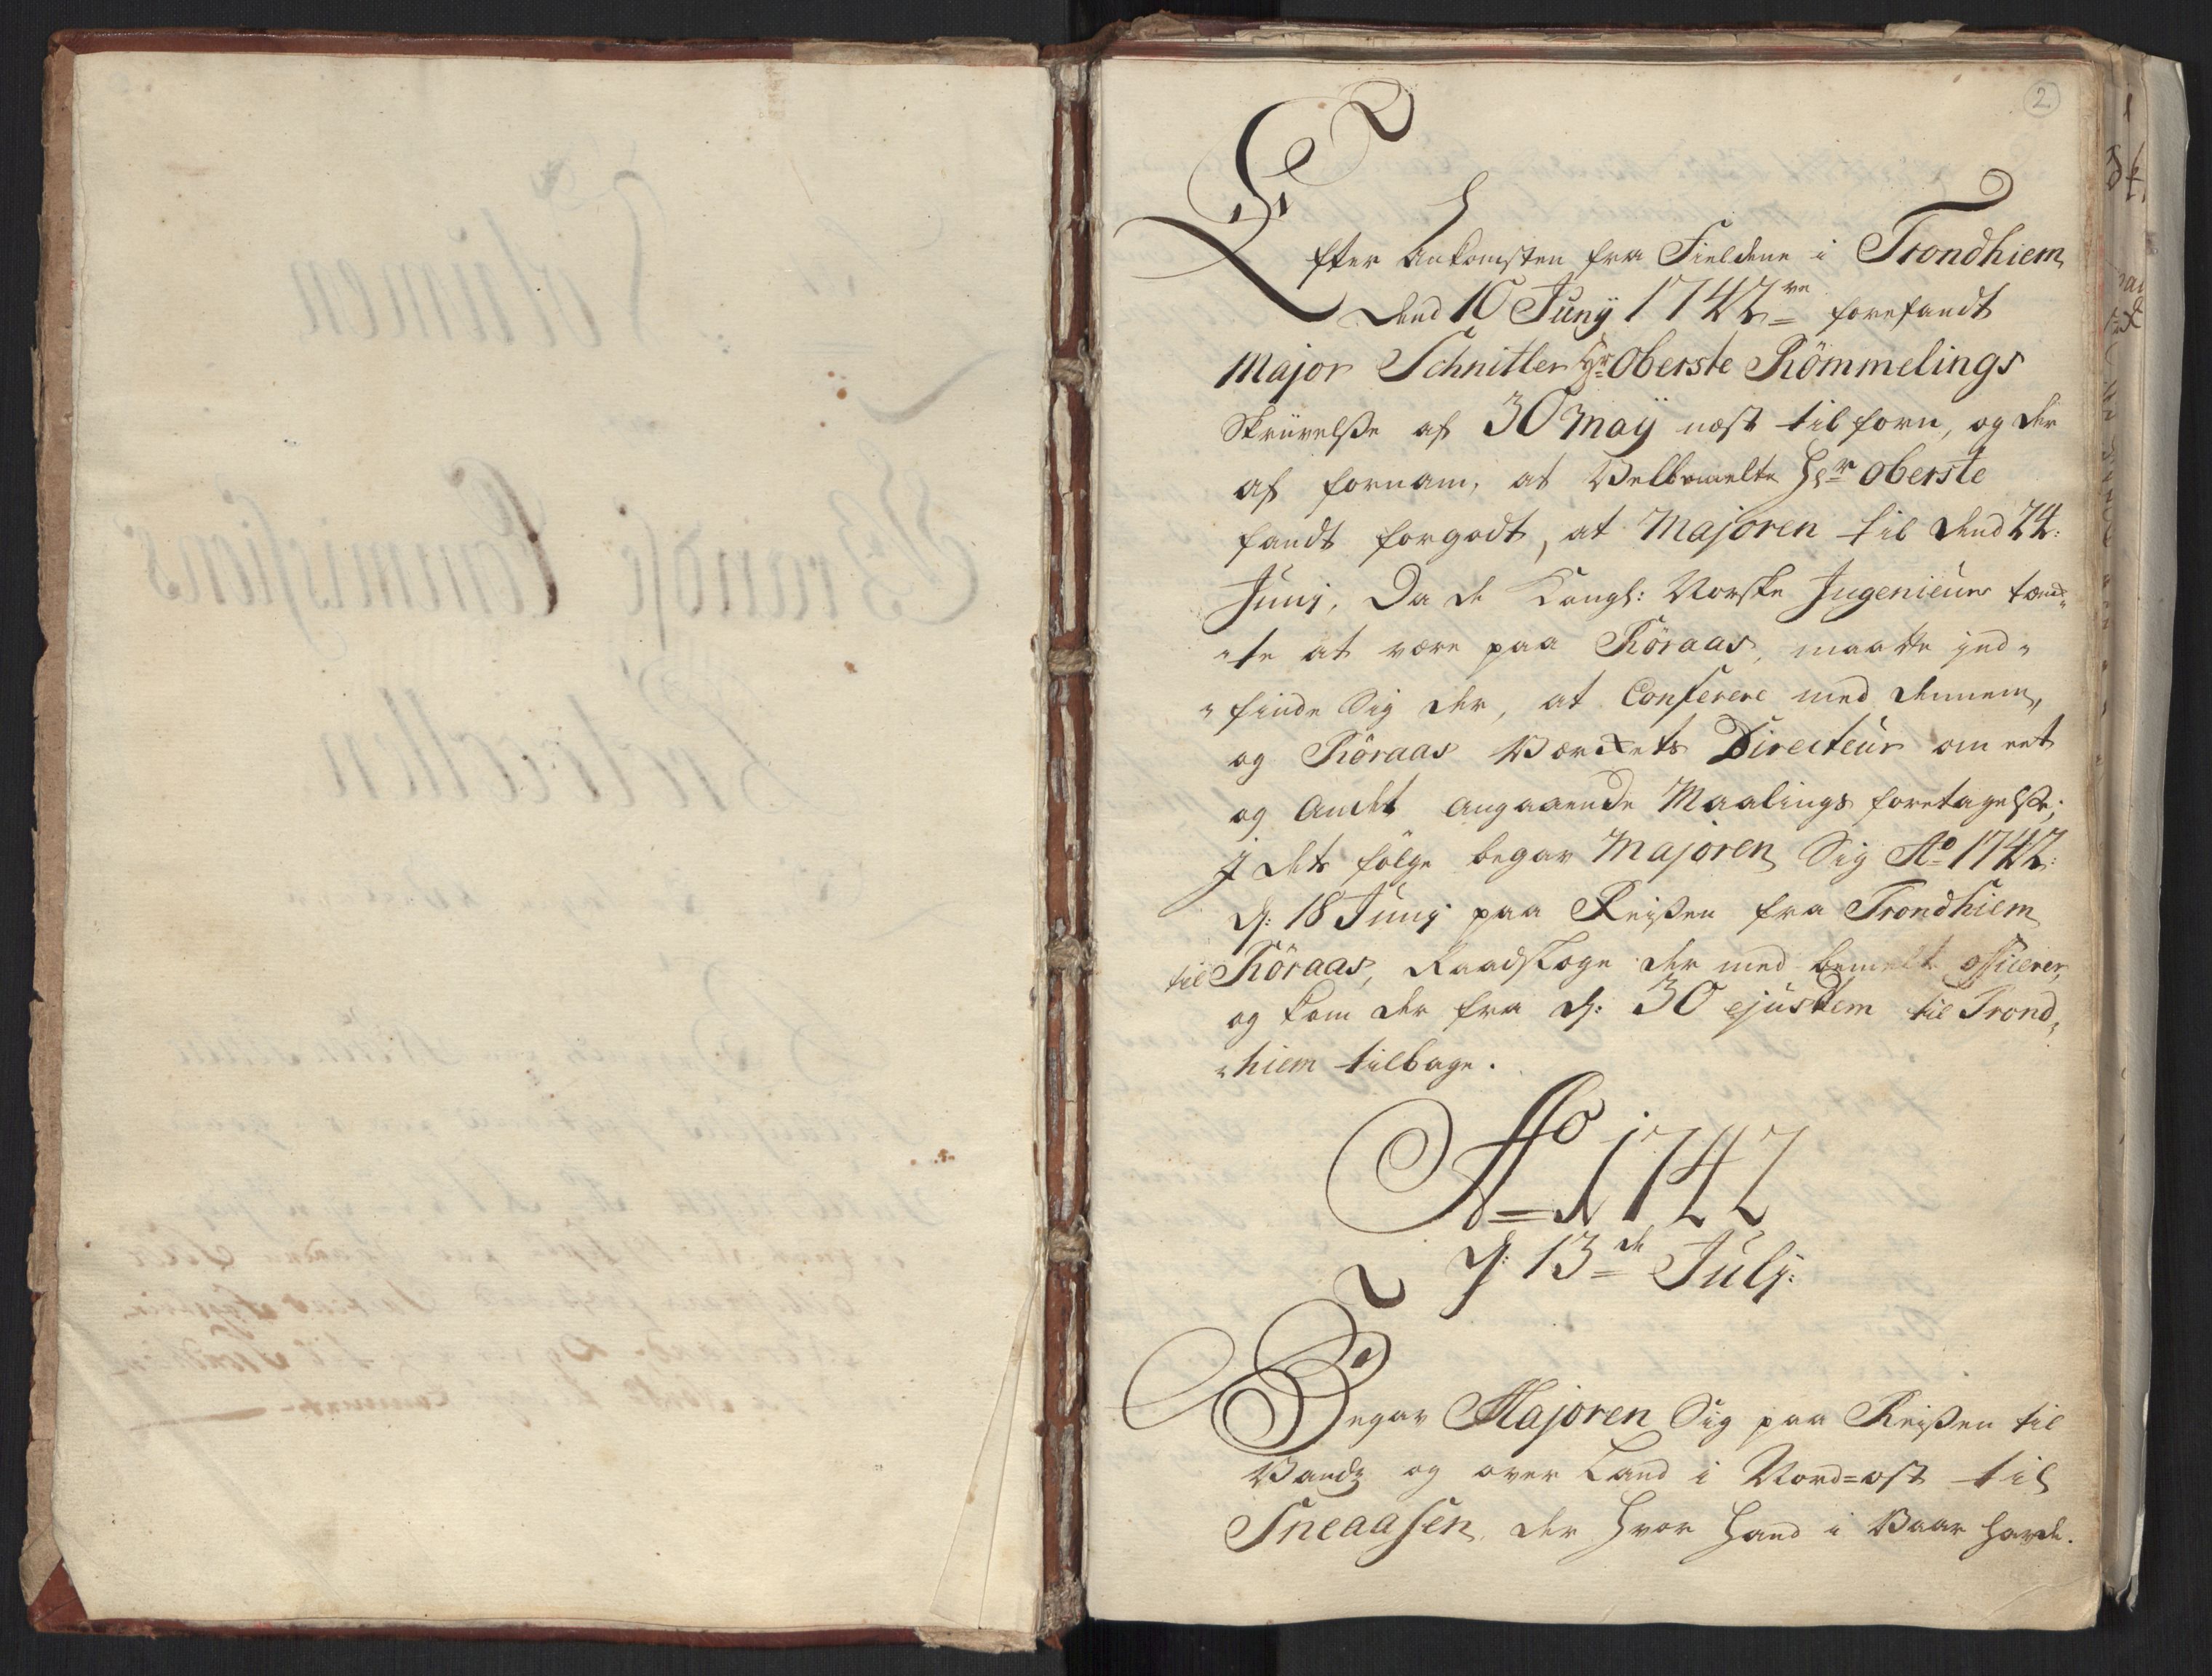 2
Efter Ankomsten fra Fieldene i Trondhiem
Dend 10 Junÿ 1742 re forefandt
Major Schnitler Hr: Oberste Römmelings
Skrivelsse af 30 Maÿ næst tilforn, og der
af fornam, at Velbemelte Hr: Oberste
fandt forgodt, at Majoren til Dend 24:
Junÿ, Da de Kongl: Norske Ingenieurs tænd„
„te at være paa Röraas, maatte ind„
„finde Sig der, at Conferere med dennem,
og Röraas Værckets Directeur om eet
og Andet angaaende Maalings foretagelsse;
J dets fölge begav Majoren Sig Ao 1742:
d: 18 Junÿ paa Reissen fra Trondhiem
til Röraas, Raadsloge der med bemelte Officerer,
og kom der fra d: 30 ejusdem til Trond„
„hiem tilbage.
Ao 1742
d: 13de Julÿ:
Begav Majoren Sig paa Reissen til
Vands og over Land i Nord=ost til
Sneaasen, der hvor hand i Vaar havde.